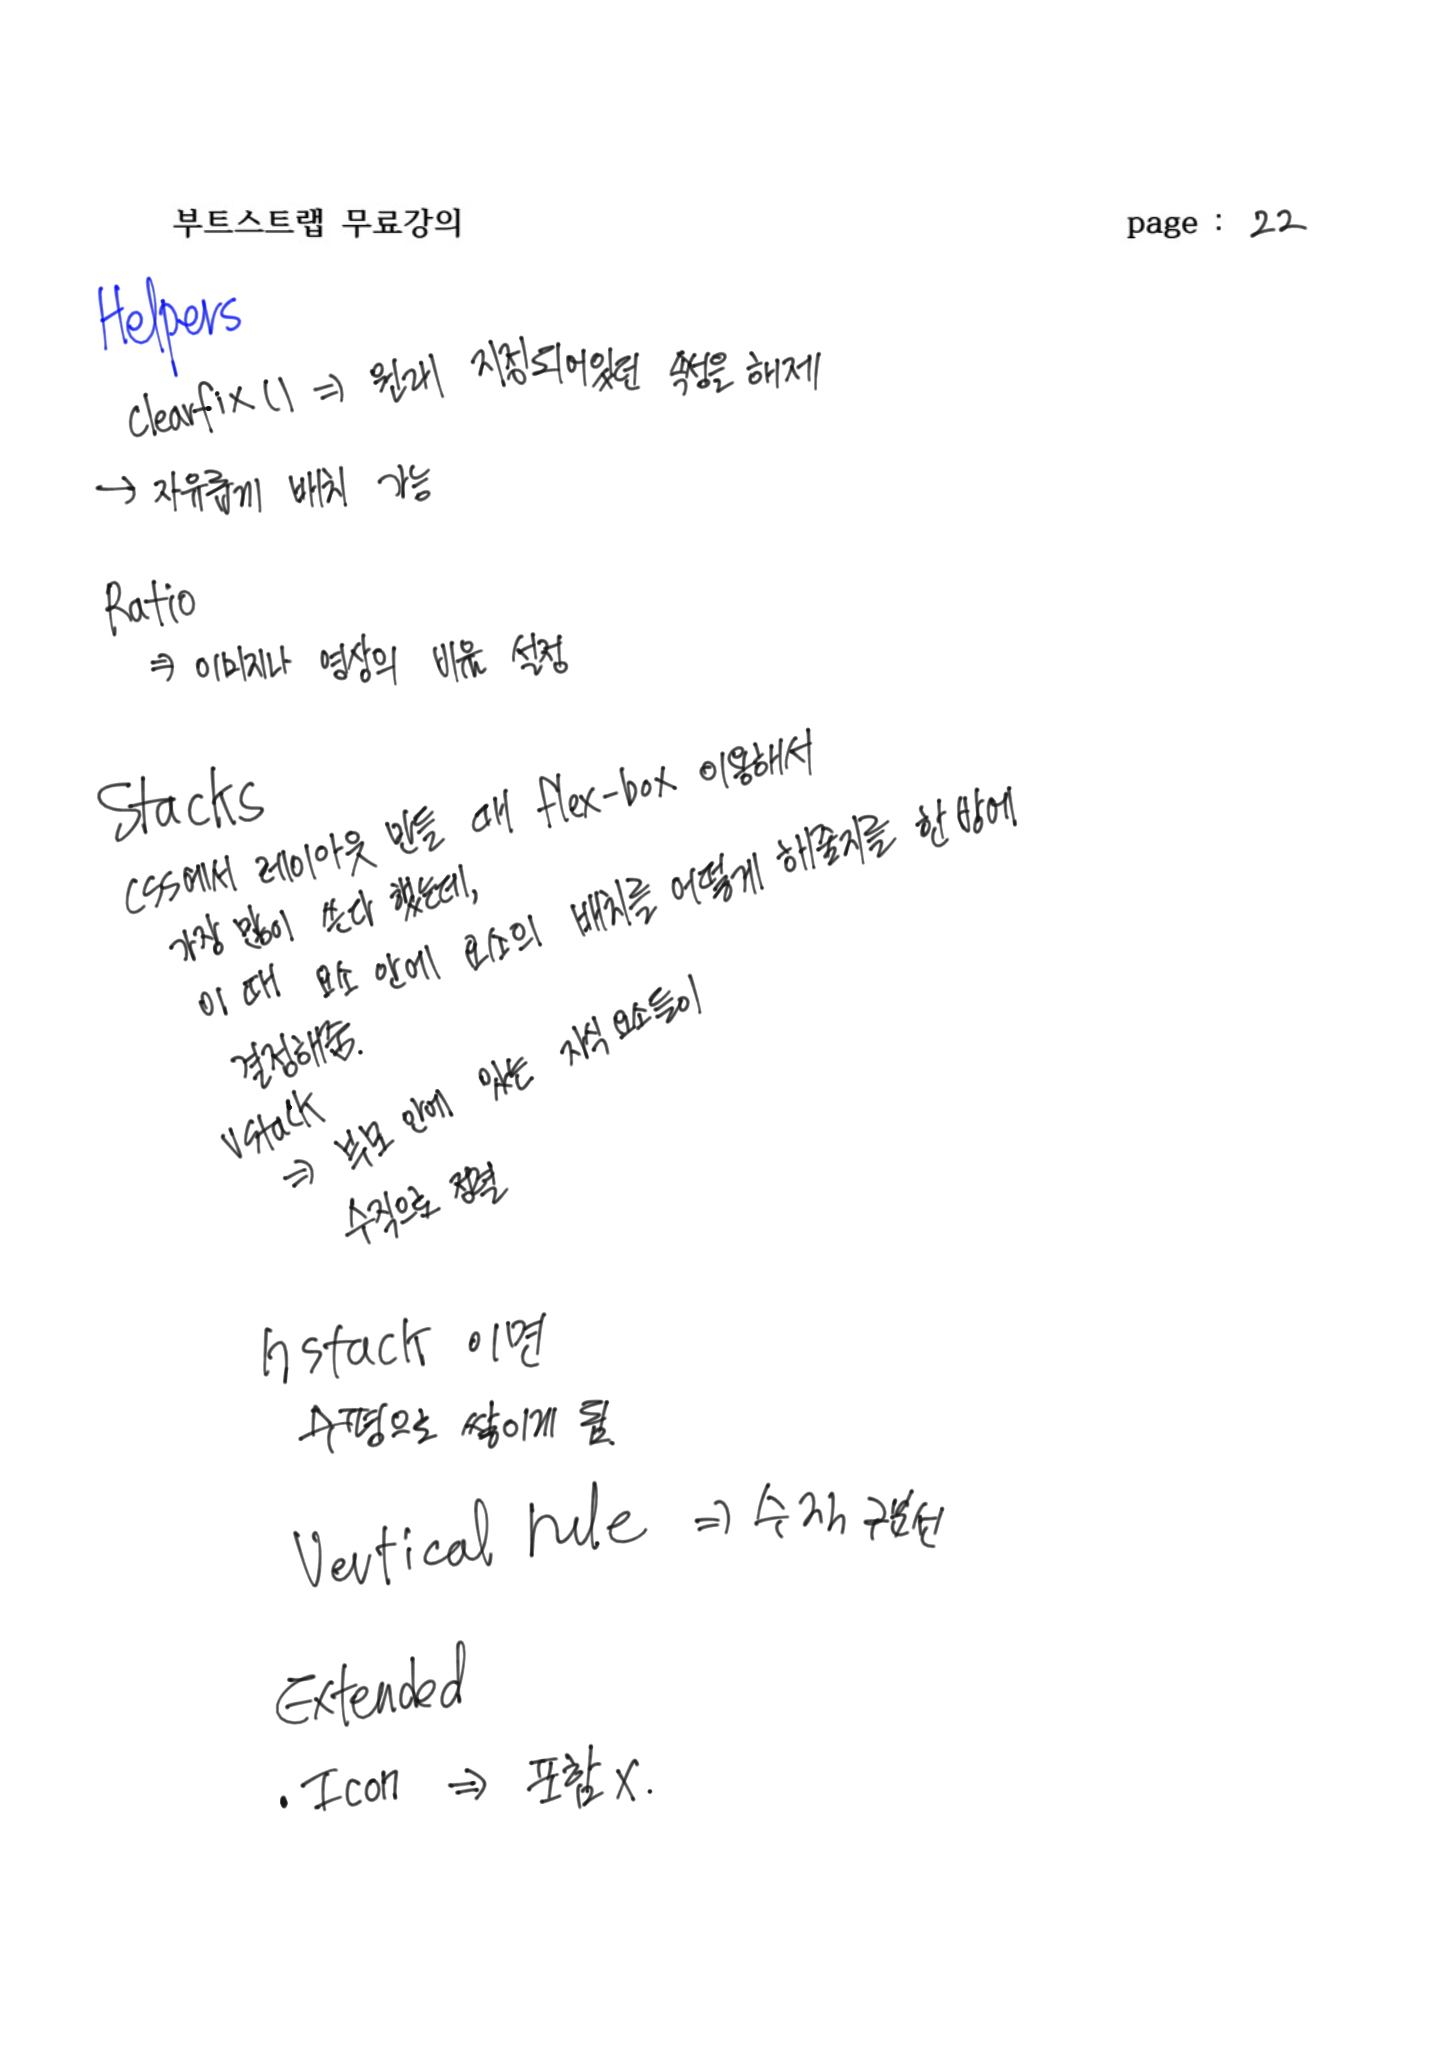 부트스트랩 무료강의
page : 22
Helpers
clearfix() ⇒ 원래 지정되어있던 속성을 해제
→ 자유롭게 배치 가능
Ratio
⇒ 이미지나 영상의 비율 설정
Stacks
CSS에서 레이아웃 만들 때 flex-box 이용해서
가장 많이 쓴다 했는데,
이 때 요소 안에 요소의 배치를 어떻게 해줄지를 한 방에
결정해줌.
vstack
⇒ 부모 안에 있는 자식 요소들이
수직으로 정렬
hstack 이면
수평으로 쌓이게 됨.
Vertical rule ⇒ 수직 구분선
Extended
. Icon ⇒ 포함 X.